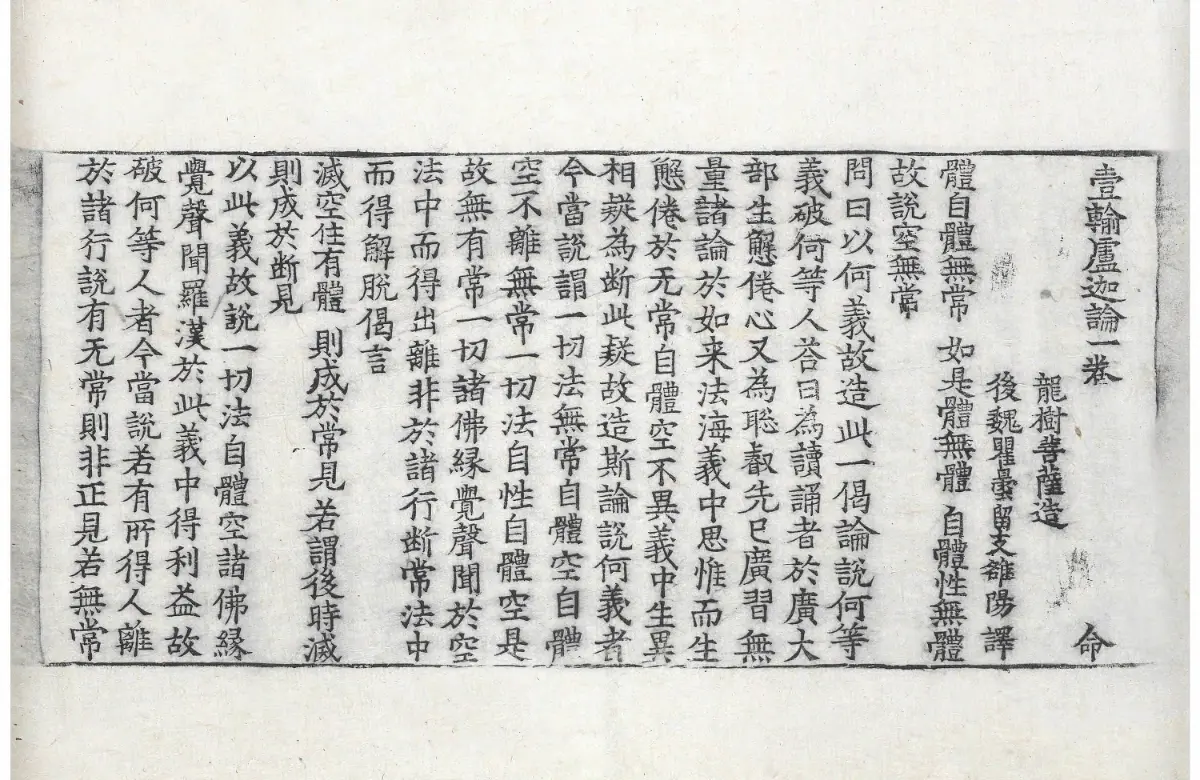 壹輸盧迦論一卷 命
龍樹菩薩造
後魏瞿曇留支雒陽譯
體自體無常 如是體無體 自體性無體
故說空無常
問曰以何義故造此一偈論說何等
義破何等人荅曰為讀誦者於廣大
部生懈倦心又為聡叡先已廣習無
量諸論於如来法海義中思惟而生
懈倦於无常自體空不異義中生異
相疑為断此疑故造斯論說何義者
今當說謂一切法無常自體空自體
空不離無常一切法自性自體空是
故無有常一切諸佛縁覺聲聞於空
法中而得出離非於諸行断常法中
而得解脫偈言
滅空住有體 則成於常見 若謂後時滅
則成於断見
以此義故說一切法自體空諸佛縁
覺聲聞羅漢於此義中得利益故
破何等人者今當說若有所得人離
於諸行說有无常則非正見若無常